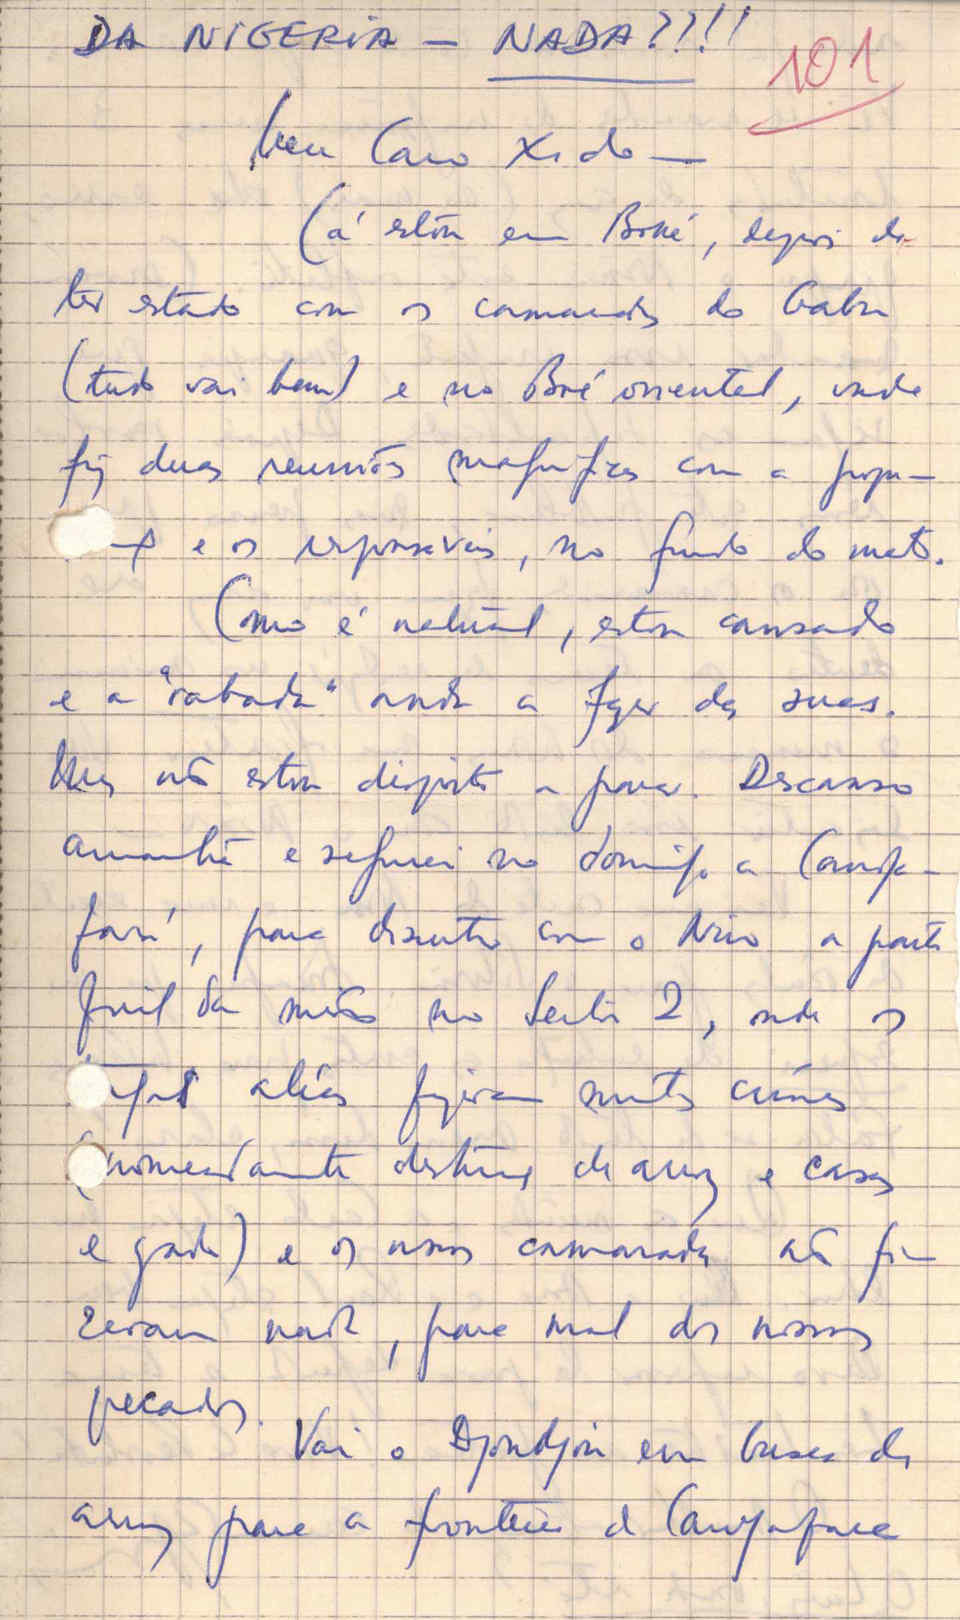 DA NIGERIA — NADA??!!
101
Meu Caro Xido —
Cá estou em Boké, depois de
ter estado com os camaradas do Gabu
(tudo vai bem) e no Boé oriental, onde
fiz duas reuniões magníficas com a popu-
e os responsáveis, no fundo do mato.
Como é natural, estou cansado
e a "rabada" anda a fazer das suas.
Mas não estou disposto a parar. Descanso
amanhã e seguirei no domingo a Candja-
fará, para discutir com o Nino a parte
final da missão no Sector 2, onde os
tugas aliás fizeram muitos crimes
(nomeadamente destruiç de arroz e casas
e gado) e os nossos camaradas não fi-
zeram nada, para mal dos nossos
pecados.
Vai o Djondjon em busca de
arroz para a fronteira de Candjafara